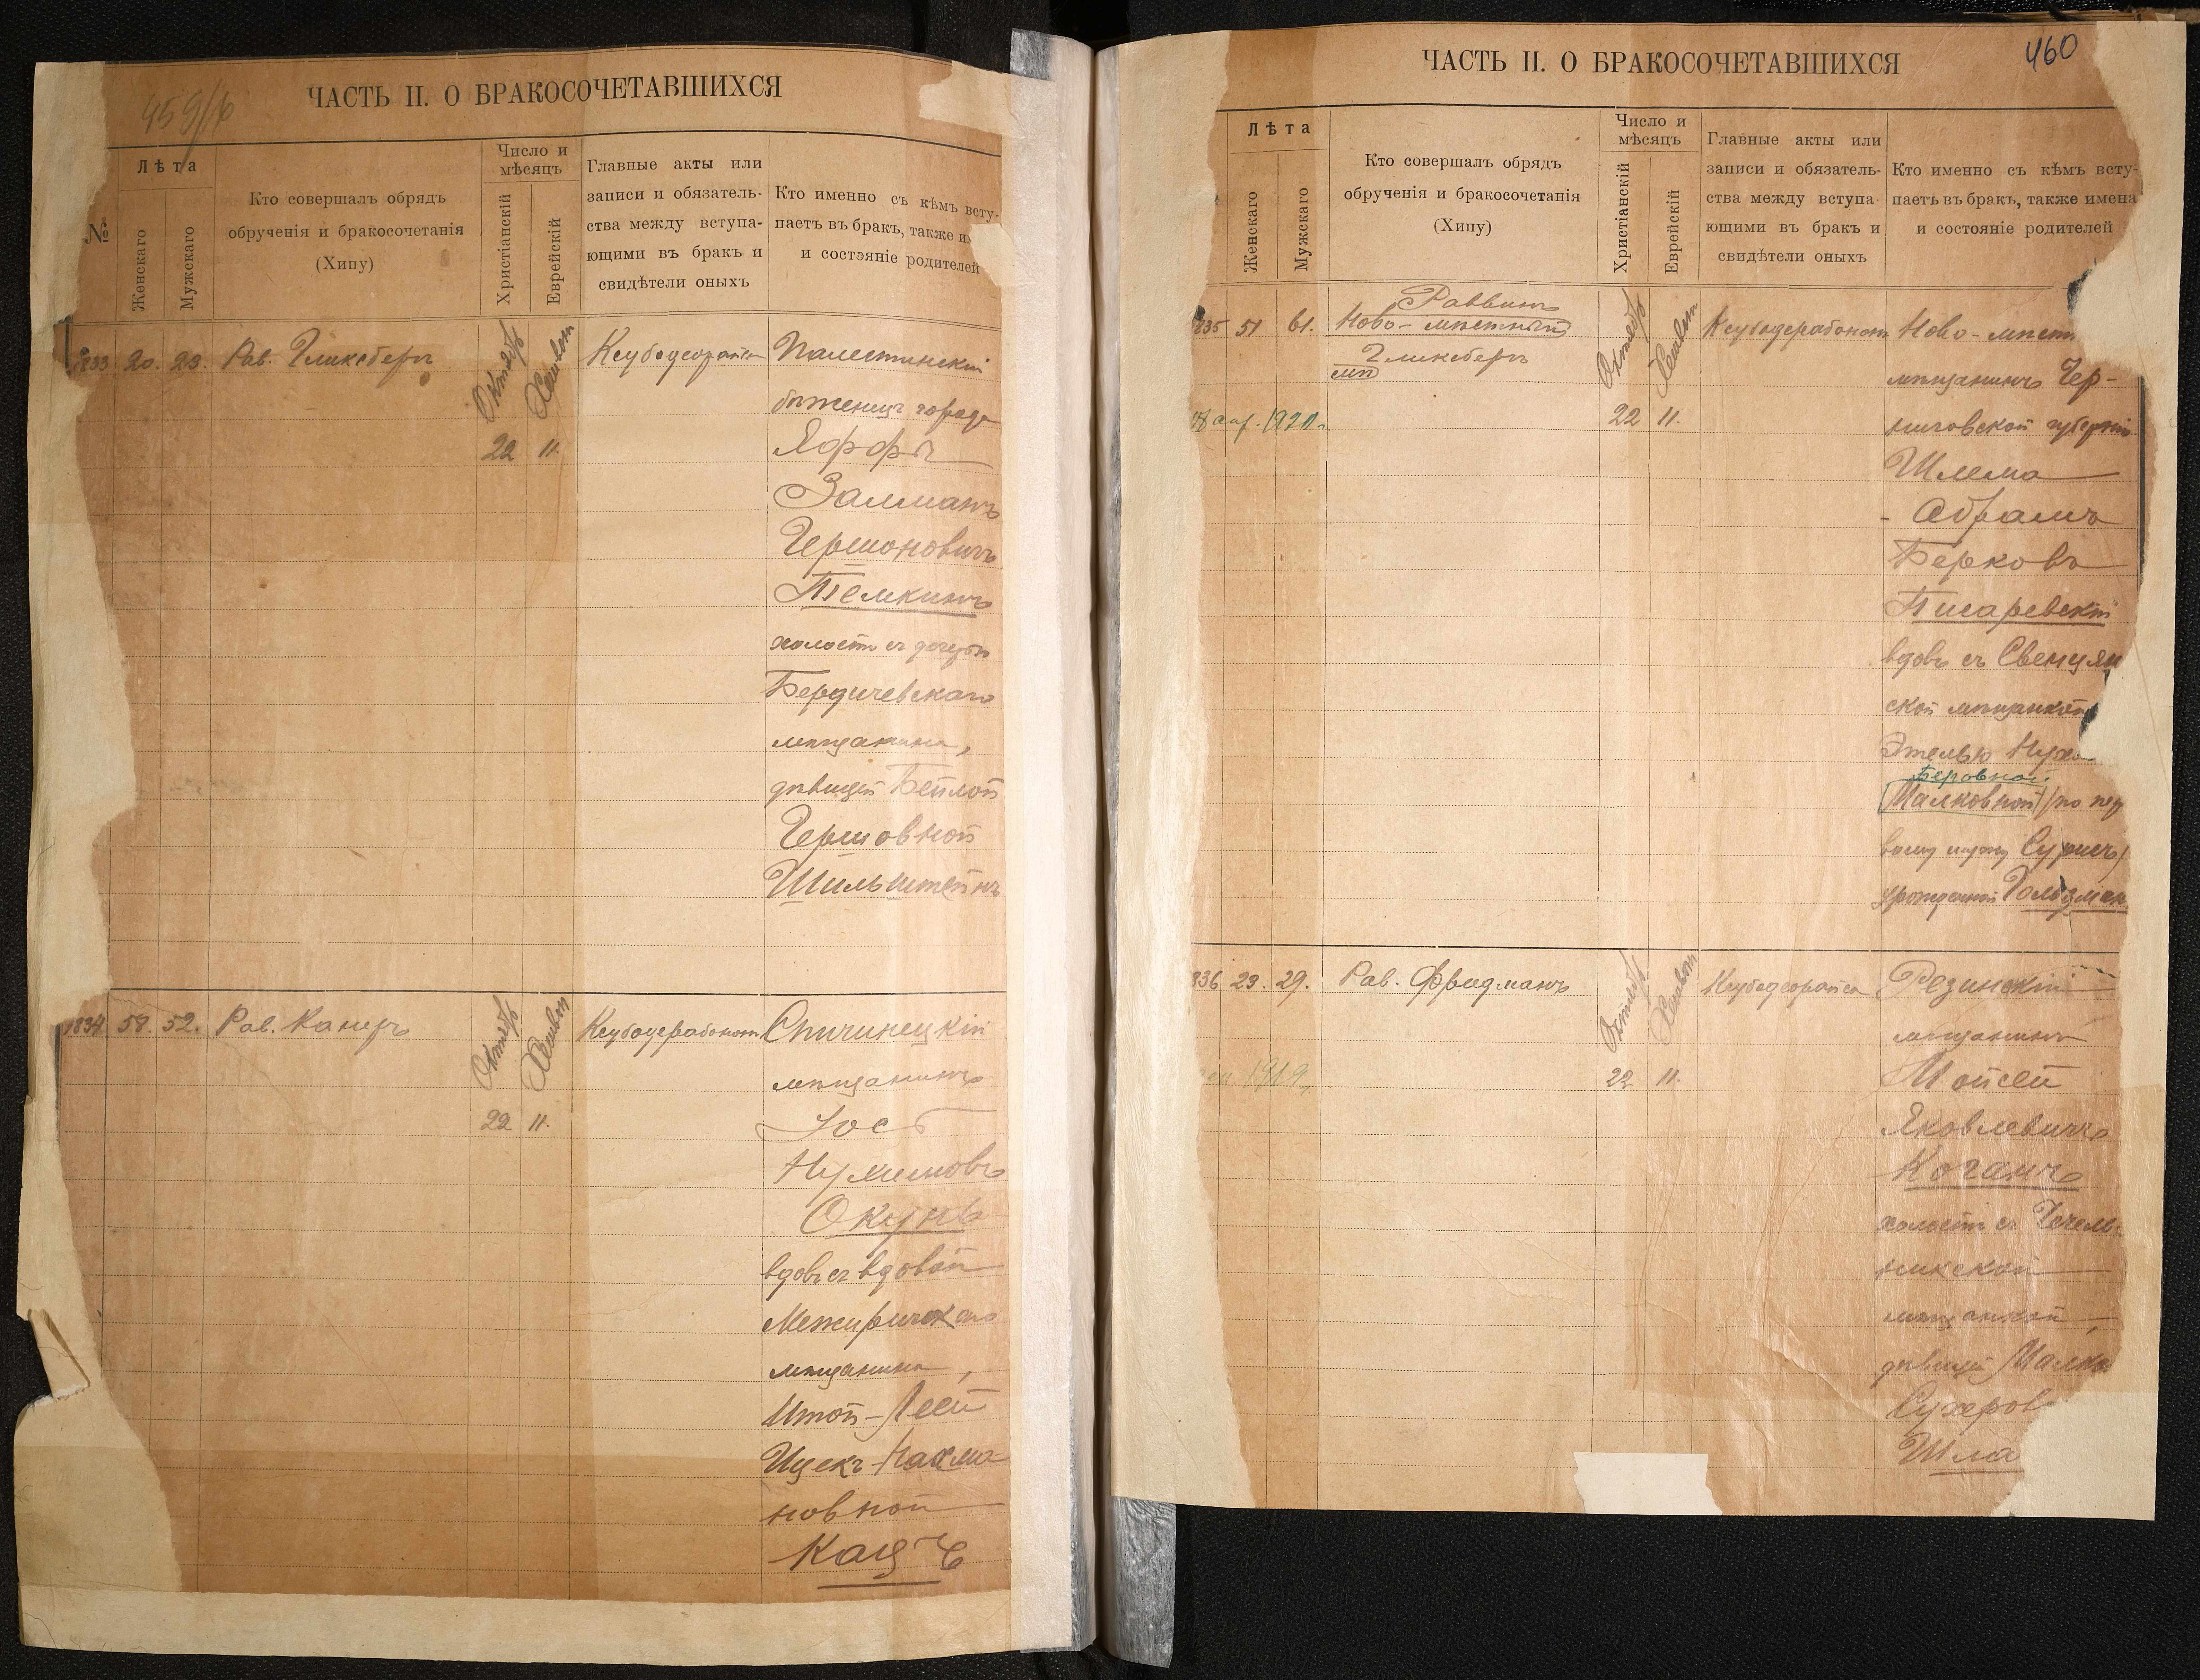 459/б
ЧАСТЬ II. О БРАКОСОЧЕТАВШИХСЯ
№
Лѣта
Женскаго
Мужескаго
Кто совершалъ обрядъ
обрученія и бракосочетанія
(Хипу)
Число и
мѣсяцъ
Христіанскій
Еврейскій
Главные акты или
записи и обязатель-
ства между вступа-
ющими въ бракъ и
свидѣтели оныхъ
Кто именно съ кѣмъ всту-
паетъ въ бракъ, также и
и состояніе родителей
1833 20. 23. Рав. Гликсбергъ
Октябр Хешвон
22 11.
Палестинскій
бѣженецъ города
Яффы
Залманъ
Гершоновичъ
Темкинъ
холост съ дочерью
Бердичевскаго
мѣщанина,
дѣвицей Бейлой
Гершовной
Шильштейнъ
1834 58. 52. Рав. Канеръ
Октябр Хешвон
22 11.
Спичинецкій
мѣщанинъ
Іосъ
Нухимовъ
Окунь
вдовъ съ вдовой
Межиричскаго
мѣщанина,
Итой-Леей
Ицекъ-Нахма
новной
Кацъ
460
ЧАСТЬ II. О БРАКОСОЧЕТАВШИХСЯ
Лѣта
Женскаго
Мужескаго
Кто совершалъ обрядъ
обрученія и бракосочетанія
(Хипу)
Число и
мѣсяцъ
Христіанскій
Еврейскій
Главные акты или
записи и обязатель-
ства между вступа
ющими въ бракъ и
свидѣтели оныхъ
Кто именно съ кѣмъ всту-
паетъ въ бракъ, также имена
и состояніе родителей
835 51 61.
Раввинъ
Ново-мѣстный
Гликсбергъ
Октябр Хешвон
22 11.
1921.
Ново-мѣстн
мѣщанинъ Чер-
ниговской губерніи
Шлема
- Абрамъ
Берковъ
Писаревскій
вдовъ съ Свенцян
ской мѣщанкой
Этелью Нухо
Беровной
Малковной (по пер
вому мужу Сурисъ)
урожденной Гользман
836 23. 29. Рав. Фридманъ
Октябр Хешвон
22 11.
1919
Резинскій
мѣщанинъ
Мойсей
Яковлевичъ
Коганъ
холост съ Чечель-
никской
мѣщанкой,
дѣвицей Малко
Сухеров
Шла